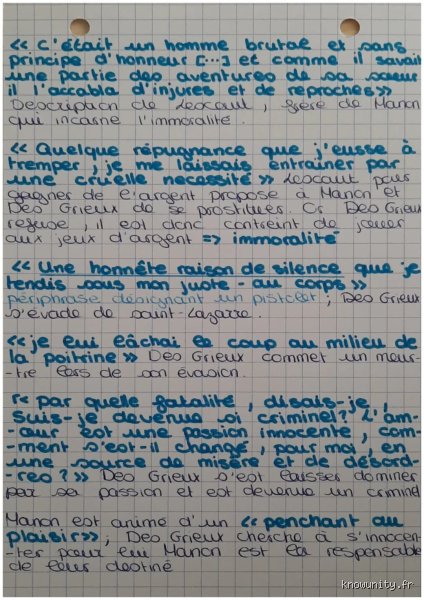 « C'était un homme brutal et sans
principe d'honneur [...] et comme il savait
une partie des aventures de sa sœur
il l'accabla d'injures et de reproches»
Description de Lescaut, frère de Manon
qui incarne l'immoralité.
« Quelque répugnance que j'eusse à
tremper, je me laissais entraîner par
une cruelle nécessité » Lescaut pour
gagner de l'argent propose à Manon et
Des Grieux de se prostituer. Or Des Grieux
refuse, il est donc contraint de jouer
aux jeux d'argent => immoralité
« Une honnête raison de silence que je
tendis sous mon juste-au corps »
périphrase désignant un pistolet ; Des Grieux
s'évade de Saint-Lazare.
« je lui lâchai le coup au milieu de
la poitrine » Des Grieux commet un meur-
-tre lors de son évasion.
« Par quelle fatalité, disais-je,
suis-je devenu si criminel? L'am-
-our est une passion innocente, com-
-ment s'est-il changé, pour moi, en
une source de misère et de désord-
-res ? » Des Grieux s'est laisser dominer
par sa passion et est devenue un criminel
Manon est animé d'un « penchant au
plaisir» ; Des Grieux cherche à s'innocen-
-ter pour lui Manon est la responsable
de leur destiné
knowunity.fr